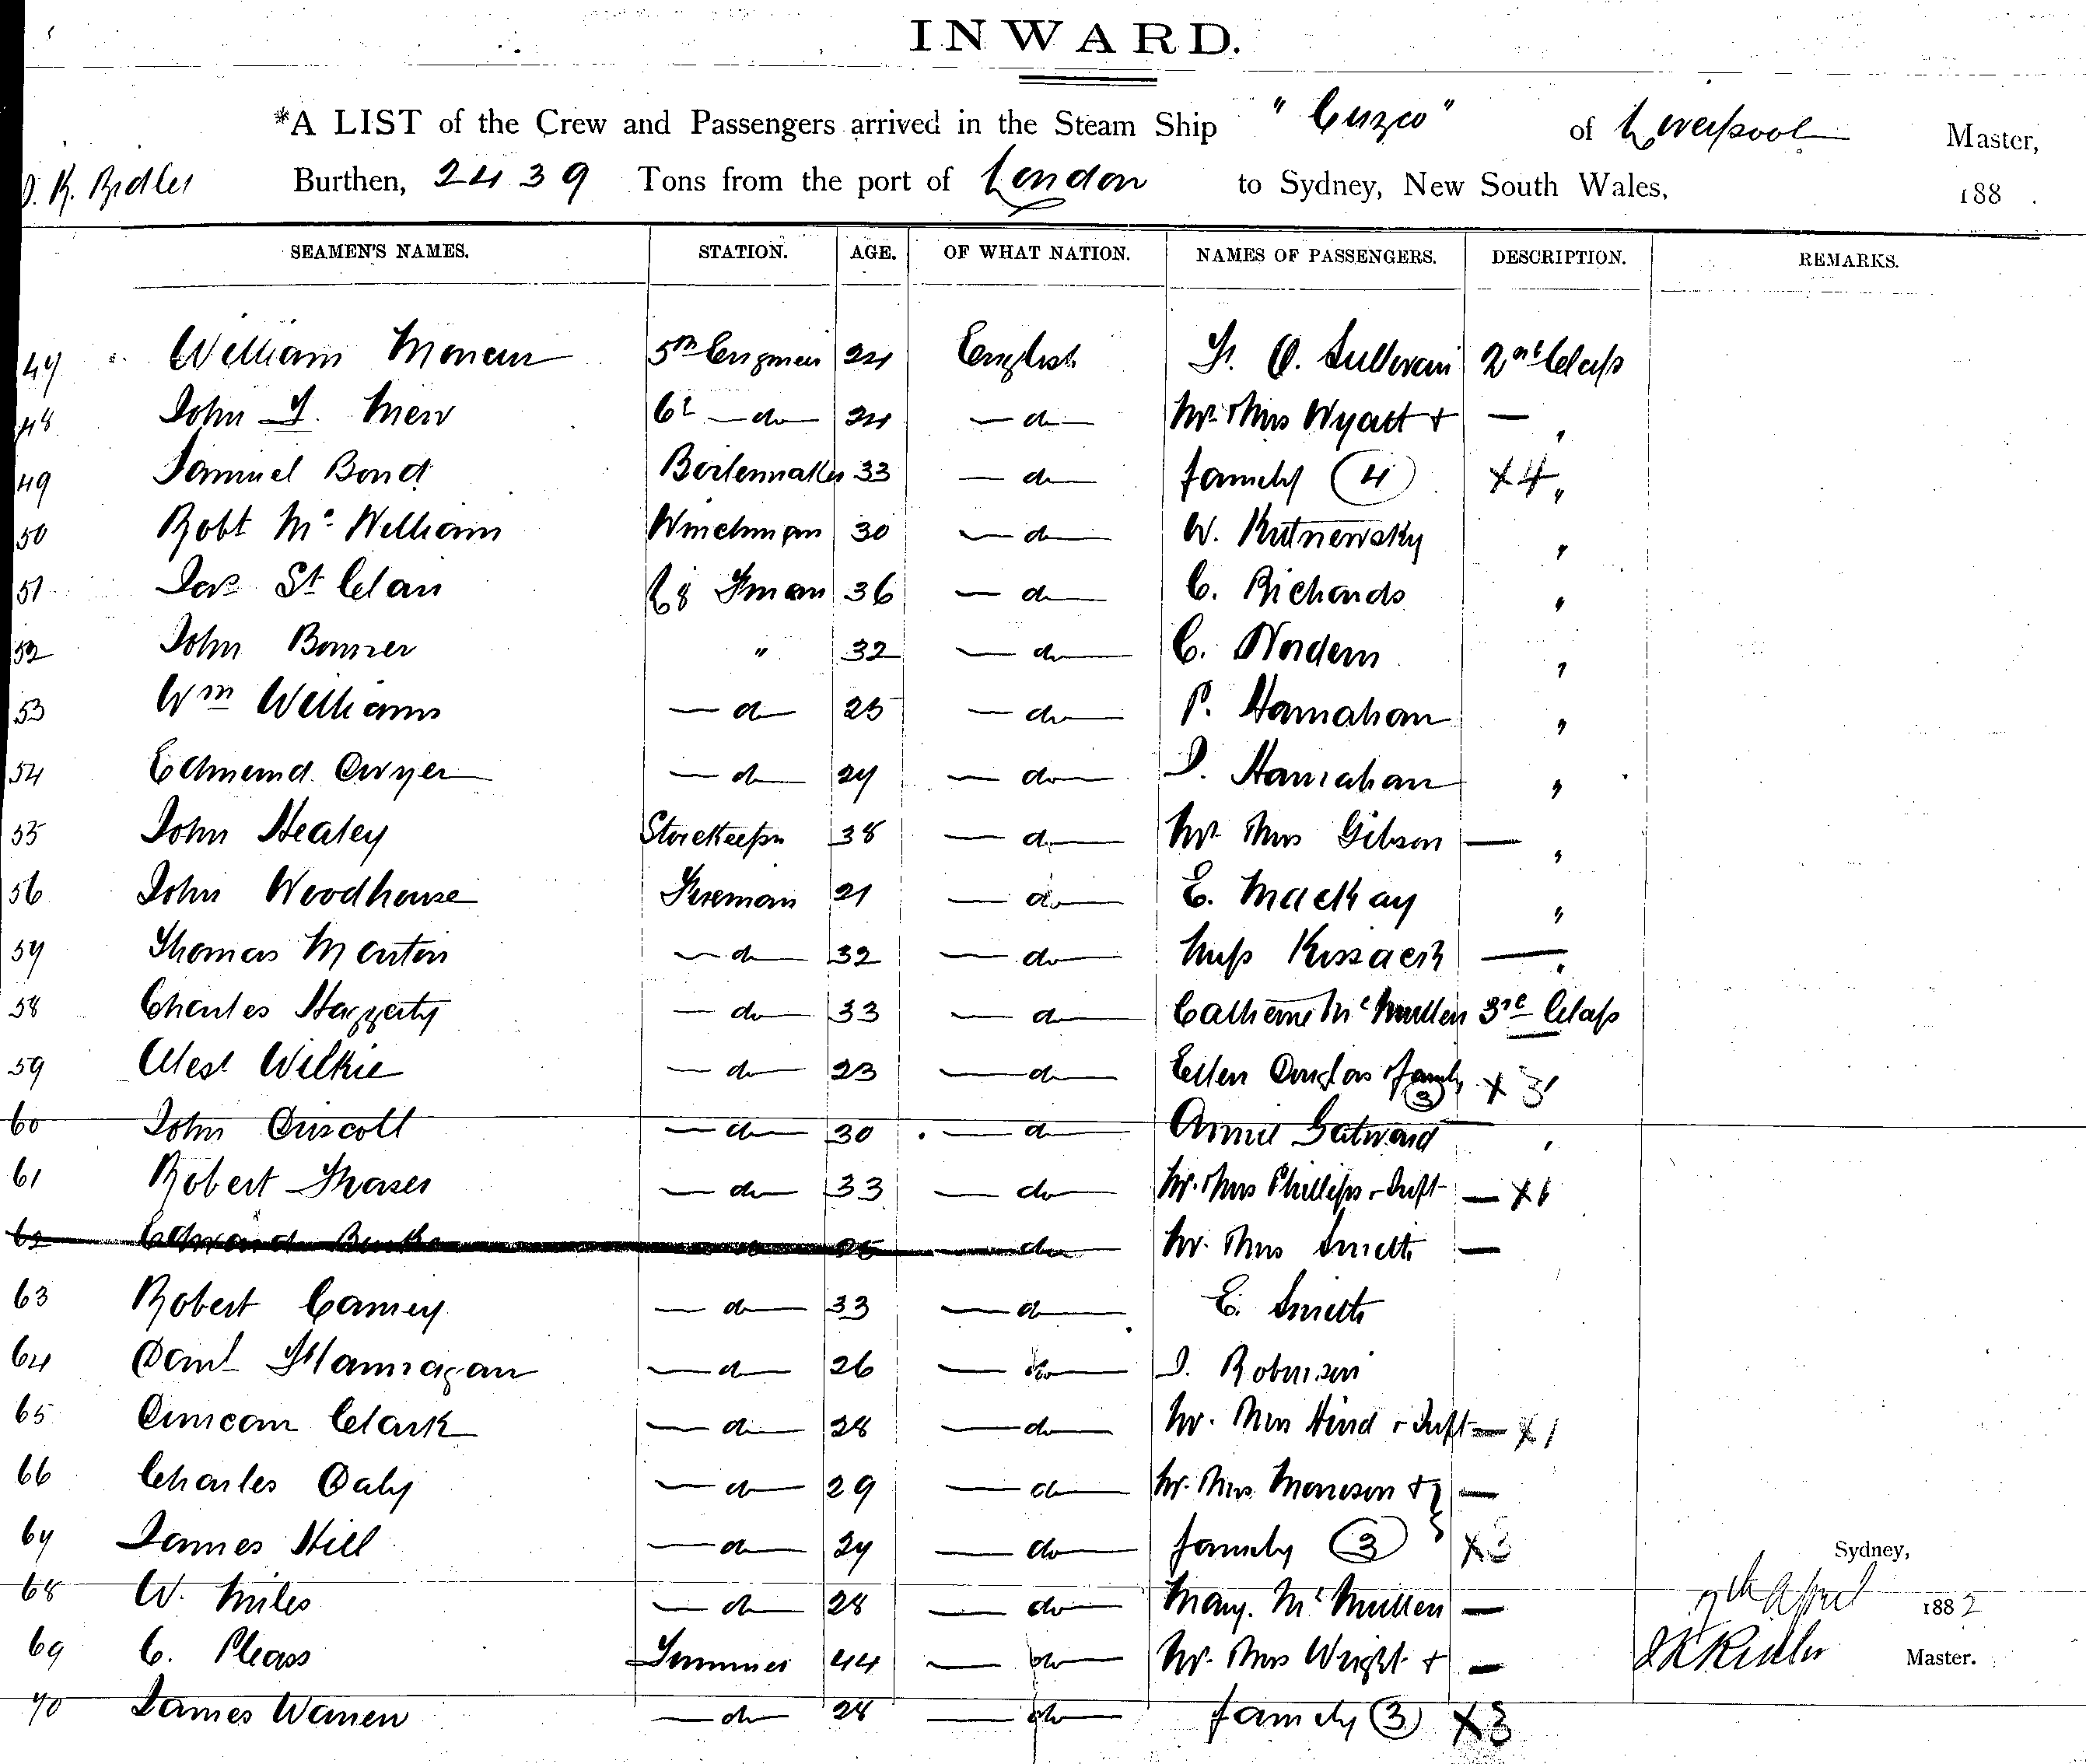 INWARD.
*A LIST of the Crew and Passengers arrived in the Steam Ship "Cuzco" of Liverpool Master,
Burthen, 2439 Tons from the port of London to Sydney, New South Wales, 188 .
SEAMEN'S NAMES. STATION. AGE. OF WHAT NATION. NAMES OF PASSENGERS. DESCRIPTION. REMARKS.
47 William 5th 24 English O. Sullivan 2nd Class
48 John Mew 6t — do 24 — do — Mr. & Mrs Wyatt + — "
49 Samuel Bond Boilermaker 33 — do family (4) X4 "
50 Robt Mc William Winchman 30 — do — W. Kutnewsky "
51 Jas St Clair Fman 36 — do — C. Richards "
52 John " 32 — do — C. Nordern "
53 Wm Williams — do — 25 — do — P. Hanrahan "
54 Edmund Dwyer — do — 27 — do — J. Hanrahan "
55 John Healey Storekeeper 38 — do — Mr Mrs Gibson — "
56 John Woodhouse Fireman 21 — do — E. Mackay "
57 Thomas Martin — do — 32 — do — Miss — "
58 Charles Haggerty — do — 33 — do — Catherine Mc Mullen 3rd Class
59 Alexr Wilkie — do — 23 — do — Ellen Douglas & family (3) X 3 '
60 John Driscoll — do — 30 — do — Annie Gatward — '
61 Robert Fraser — do — 33 — do — Mr. & Mrs Phillips & Inft — X1
62 Edmond Burke — do — 25 — do — Mr. Mrs Smith —
63 Robert — do — 33 — do — E. Smith
64 Danl Flannagan — do — 26 — do — J. Robinson
65 Duncan Clark — do — 28 — do — Mr. Mrs Hind & Inft — X1
66 Charles Daly — do — 29 — do — Mr. Mrs Morrison + } —
67 James Hill — do — 27 — do — family (3) X3
Sydney,
68 W. Miles — do — 28 — do — Mary. Mc Mullen — 7th April 1882
69 C. Pleass Trimmer 44 — do — Mr. Mrs Wright + — Master.
70 James Warren — do — 28 — do — family (3) X3